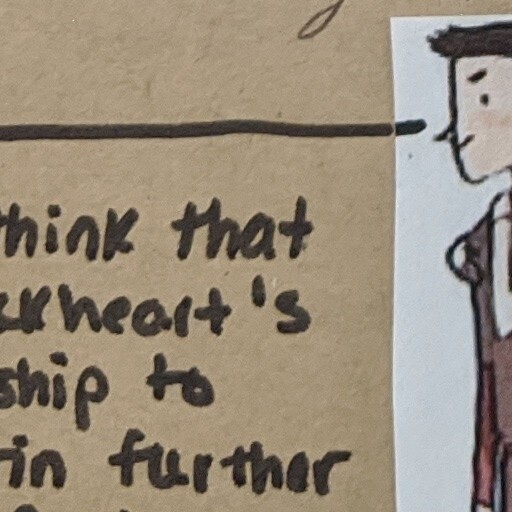 think that
ckheart's
ship to
in further